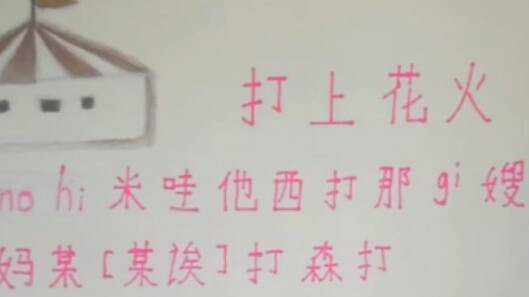 打上花火
no hi 米哇他西打那 gi 嫂
妈某［某诶］打森打